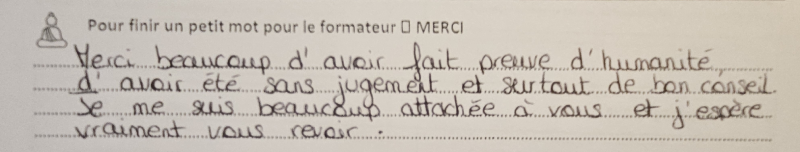 Pour finir un petit mot pour le formateur □ MERCI
Merci beaucoup d'avoir fait preuve d'humanité,
d'avoir été sans jugement et surtout de bon conseil
Je me suis beaucoup attachée à vous et j'espère
vraiment vous revoir.